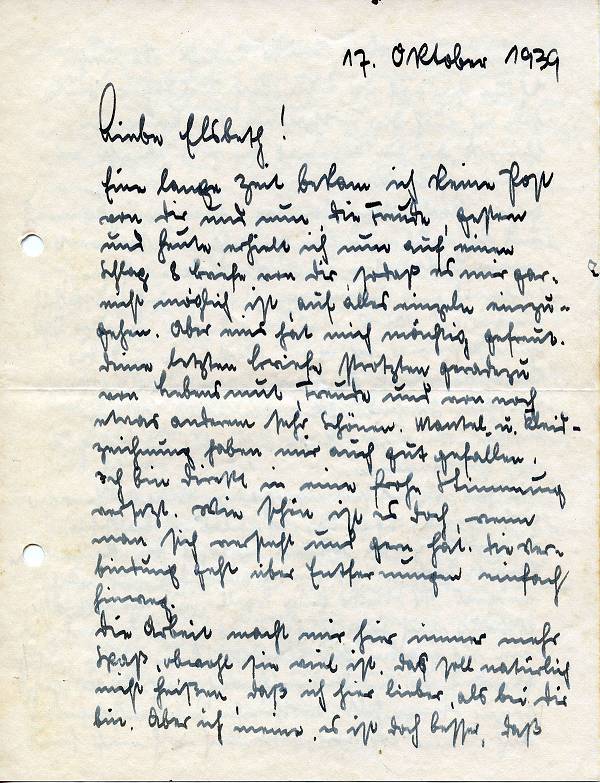 17. Oktober 1939
Liebe Elsbeth!
Eine lange Zeit bekam ich keine Post
von dir und nun, die Freude, gestern
und heute erhielt ich nun auf einen
Schlag 8 Briefe von dir, sodaß es mir gar-
nicht möglich ist, auf alles einzeln einzu-
gehen. Aber eins hat mich mächtig gefreut.
Deine letzten Briefe strotzten geradezu
von Lebensmut, Freude und von noch
etwas anderem sehr Schönen. Mantel u. Kleid-
zeichnung haben mir auch gut gefallen.
Ich bin direkt in eine frohe Stimmung
versetzt. Wie schön ist es doch, wenn
man sich versteht und gern hat. Die Ver-
bindung geht über Entfernungen einfach
hinweg.
Die Arbeit macht mir hier immer mehr
Spaß, obwohl sie viel ist. Das soll natürlich
nicht heißen, daß ich hier lieber, als bei dir
bin. Aber ich meine, es ist doch besser, daß